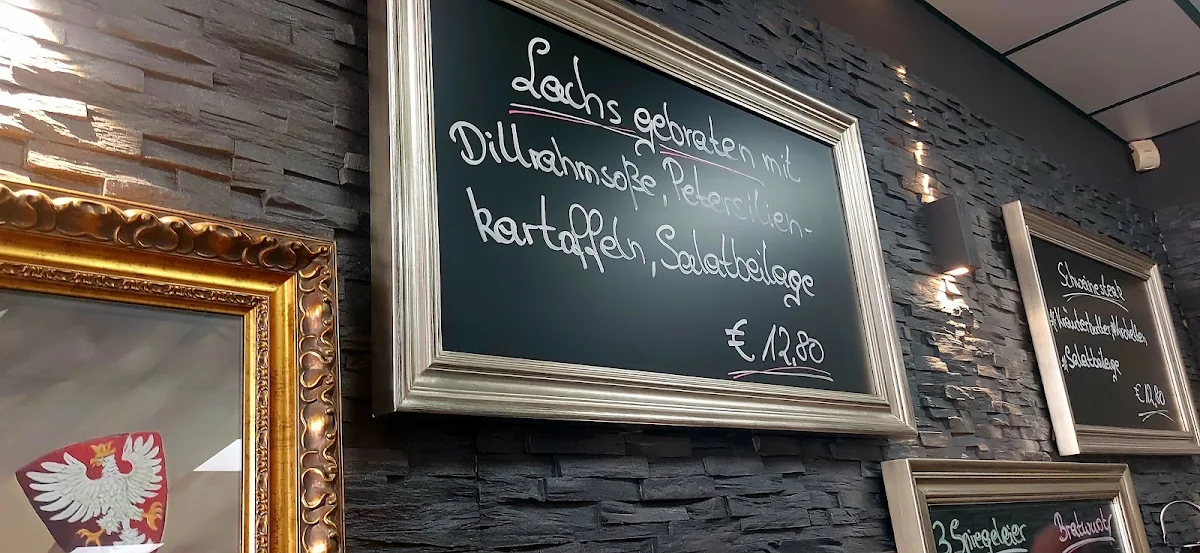 Lachs gebraten mit
Dillrahmsoße, Petersilien-
kartoffeln, Salatbeilage
€ 12,80
Schweinesteak
#Kräuterbutter
#Salatbeilage
€ 12,80
3 Spiegeleier Bratwurst